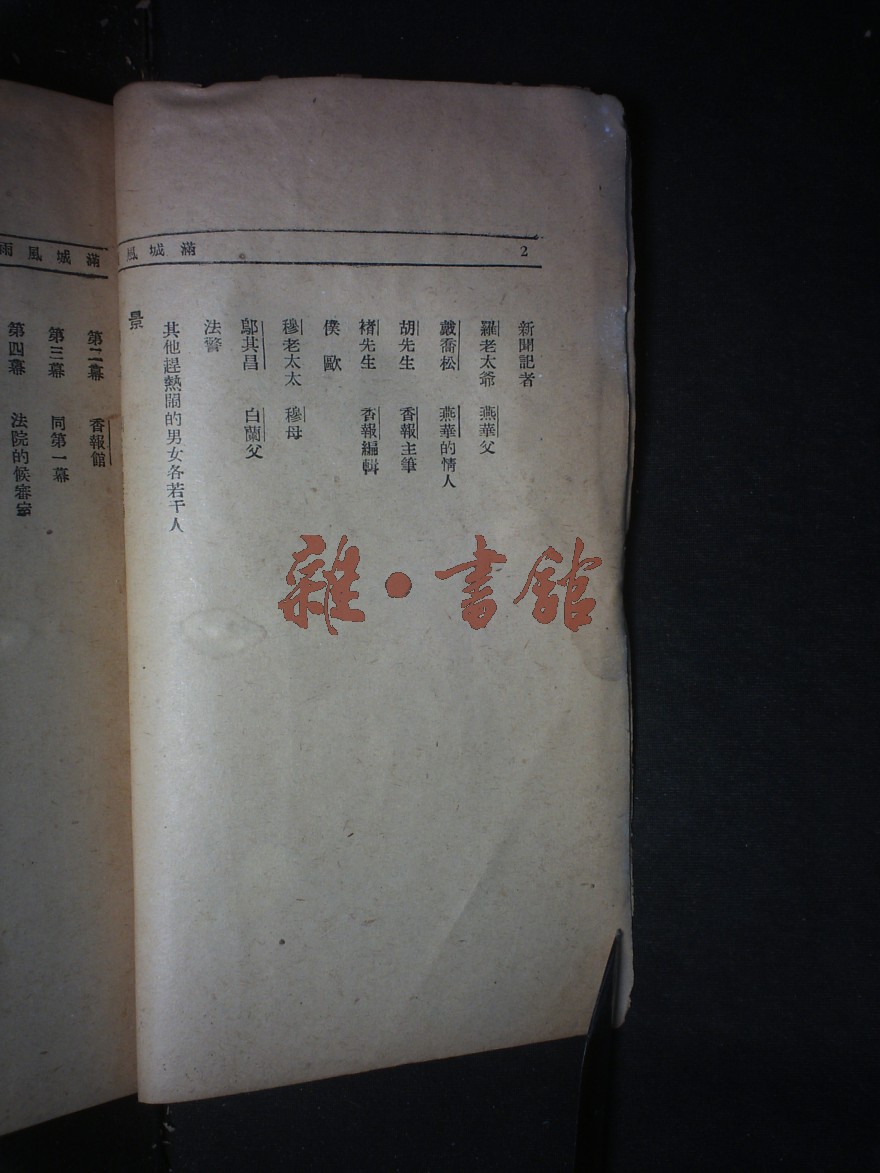 2
滿城風
新聞記者
羅老太爺 燕華父
戴喬松 燕華的情人
胡先生 香報主筆
褚先生 香報編輯
僕歐
穆老太太 穆母
鄔其昌 白蘭父
法警
其他趕熱鬧的男女各若干人
景
滿城風雨
第二幕 香報館
第三幕 同第一幕
第四幕 法院的候審室
雜·書館